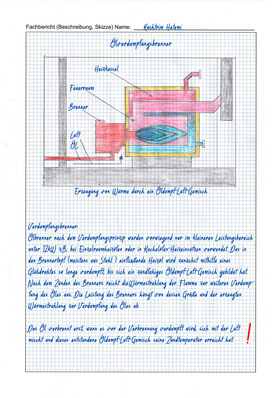 Fachbericht (Beschreibung, Skizze) Name:
Ölverdampfungsbrenner
Heizkessel
Feuerraum
Brenner
Luft
Öl
Erzeugung von Wärme durch ein Öldampf-Luft-Gemisch
Verdampfungsbrenner:
Ölbrenner nach dem Verdampfungsprinzip werden vorwiegend nur im kleineren Leistungsbereich
unter 12kW z.B. bei Einzelraumheizöfen oder in Kachelofen-Heizeinsätzen verwendet. Das in
den Brennertopf (meistens aus Stahl) einfließende Heizöl wird zunächst mithilfe eines
Glühdrahtes so lange verdampft, bis sich ein zündfähiges Öldampf-Luft-Gemisch gebildet hat.
Nach dem Zünden des Brenners reicht die Wärmestrahlung der Flamme zur weiteren Verdampf-
ung des Öles aus. Die Leistung des Brenners hängt von dessen Größe und der erzeugten
Wärmestrahlung zur Verdampfung des Öles ab.
Das Öl verbrennt erst wenn es vor der Verbrennung verdampft wird, sich mit der Luft
mischt und dieses entstandene Öldampf-Luft-Gemisch seine Zündtemperatur erreicht hat !